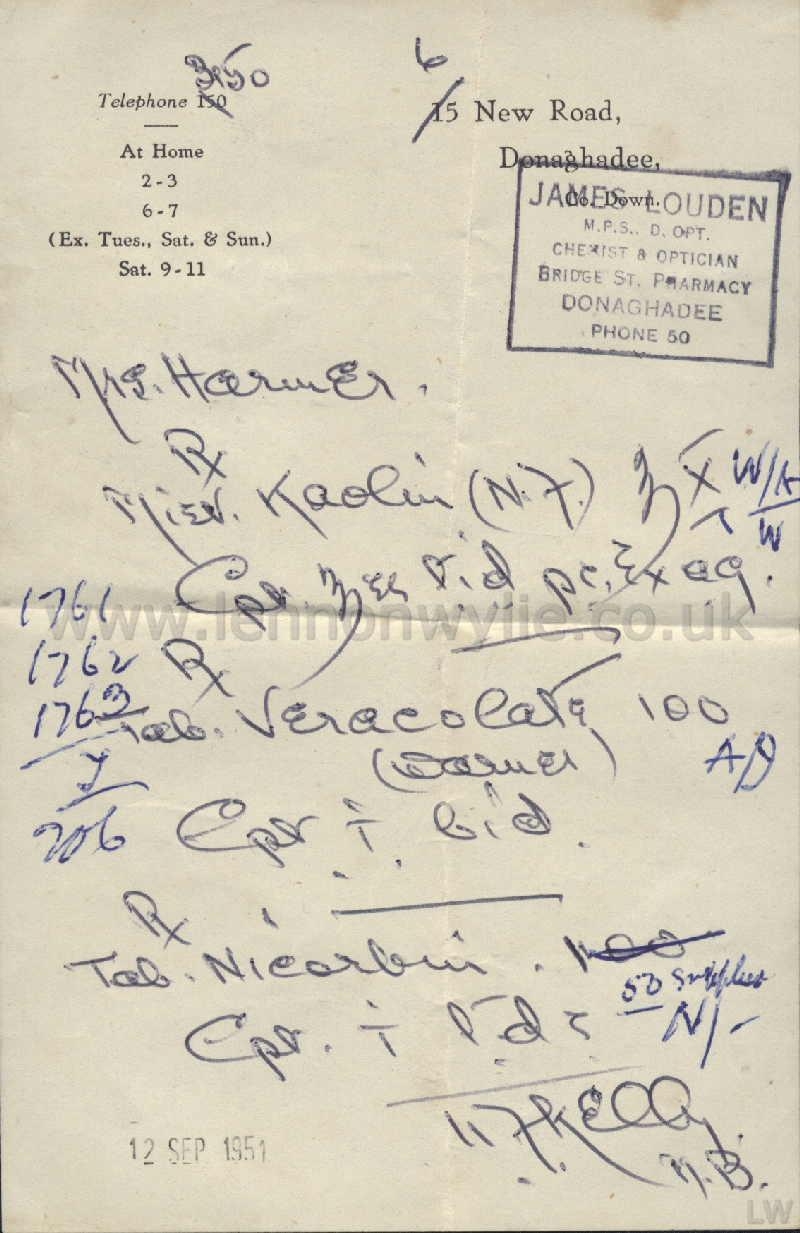 3150
Telephone 150
At Home
2-3
6-7
(Ex. Tues., Sat. & Sun.)
Sat. 9-11
6
15 New Road,
Donaghadee,
Co. Down.
JAMES LOUDEN
M.P.S., D. OPT.
CHEMIST & OPTICIAN
BRIDGE ST. PHARMACY
DONAGHADEE
PHONE 50
Mrs. Harmer.
Rx
Mist. Kaolin (N.F.) ʒ X W/A
W
Cpt ʒ ss t.i.d p.c. Ex aq.
1761
1762
1763
www.lennonwylie.co.uk
Rx
Tab. Veracolate 100
(Warner) AD
706
Cpt i b.i.d.
Rx
Tab. Nicorbin. 100
50 supplied
N/-
Cpt. i t.d.s
Kelly
M.B.
12 SEP 1951
LW